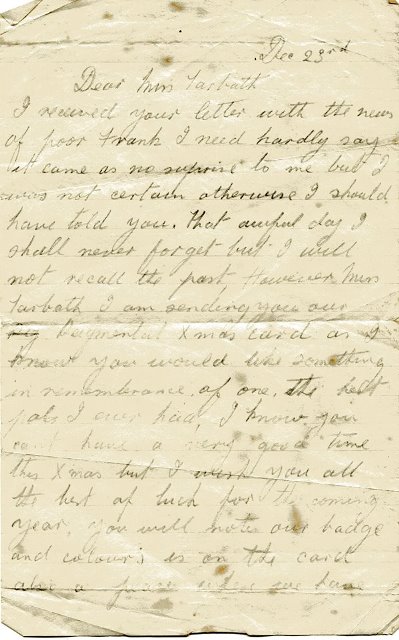 Dec 23rd
Dear Mrs Tarbath
I received your letter with the news
of poor Frank I need hardly say
it came as no suprise to me but I
was not certain otherwise I should
have told you. That awful day I
shall never forget but I will
not recall the past, However Mrs
Tarbath I am sending you our
Regmental Xmas card as I
know you would like something
in remembrance of one the best
pals I ever had, I know you
cant have a very good time
this Xmas but I wish you all
the best of luck for the coming
year, you will note our badge
and colours is on the card
also a place where we have